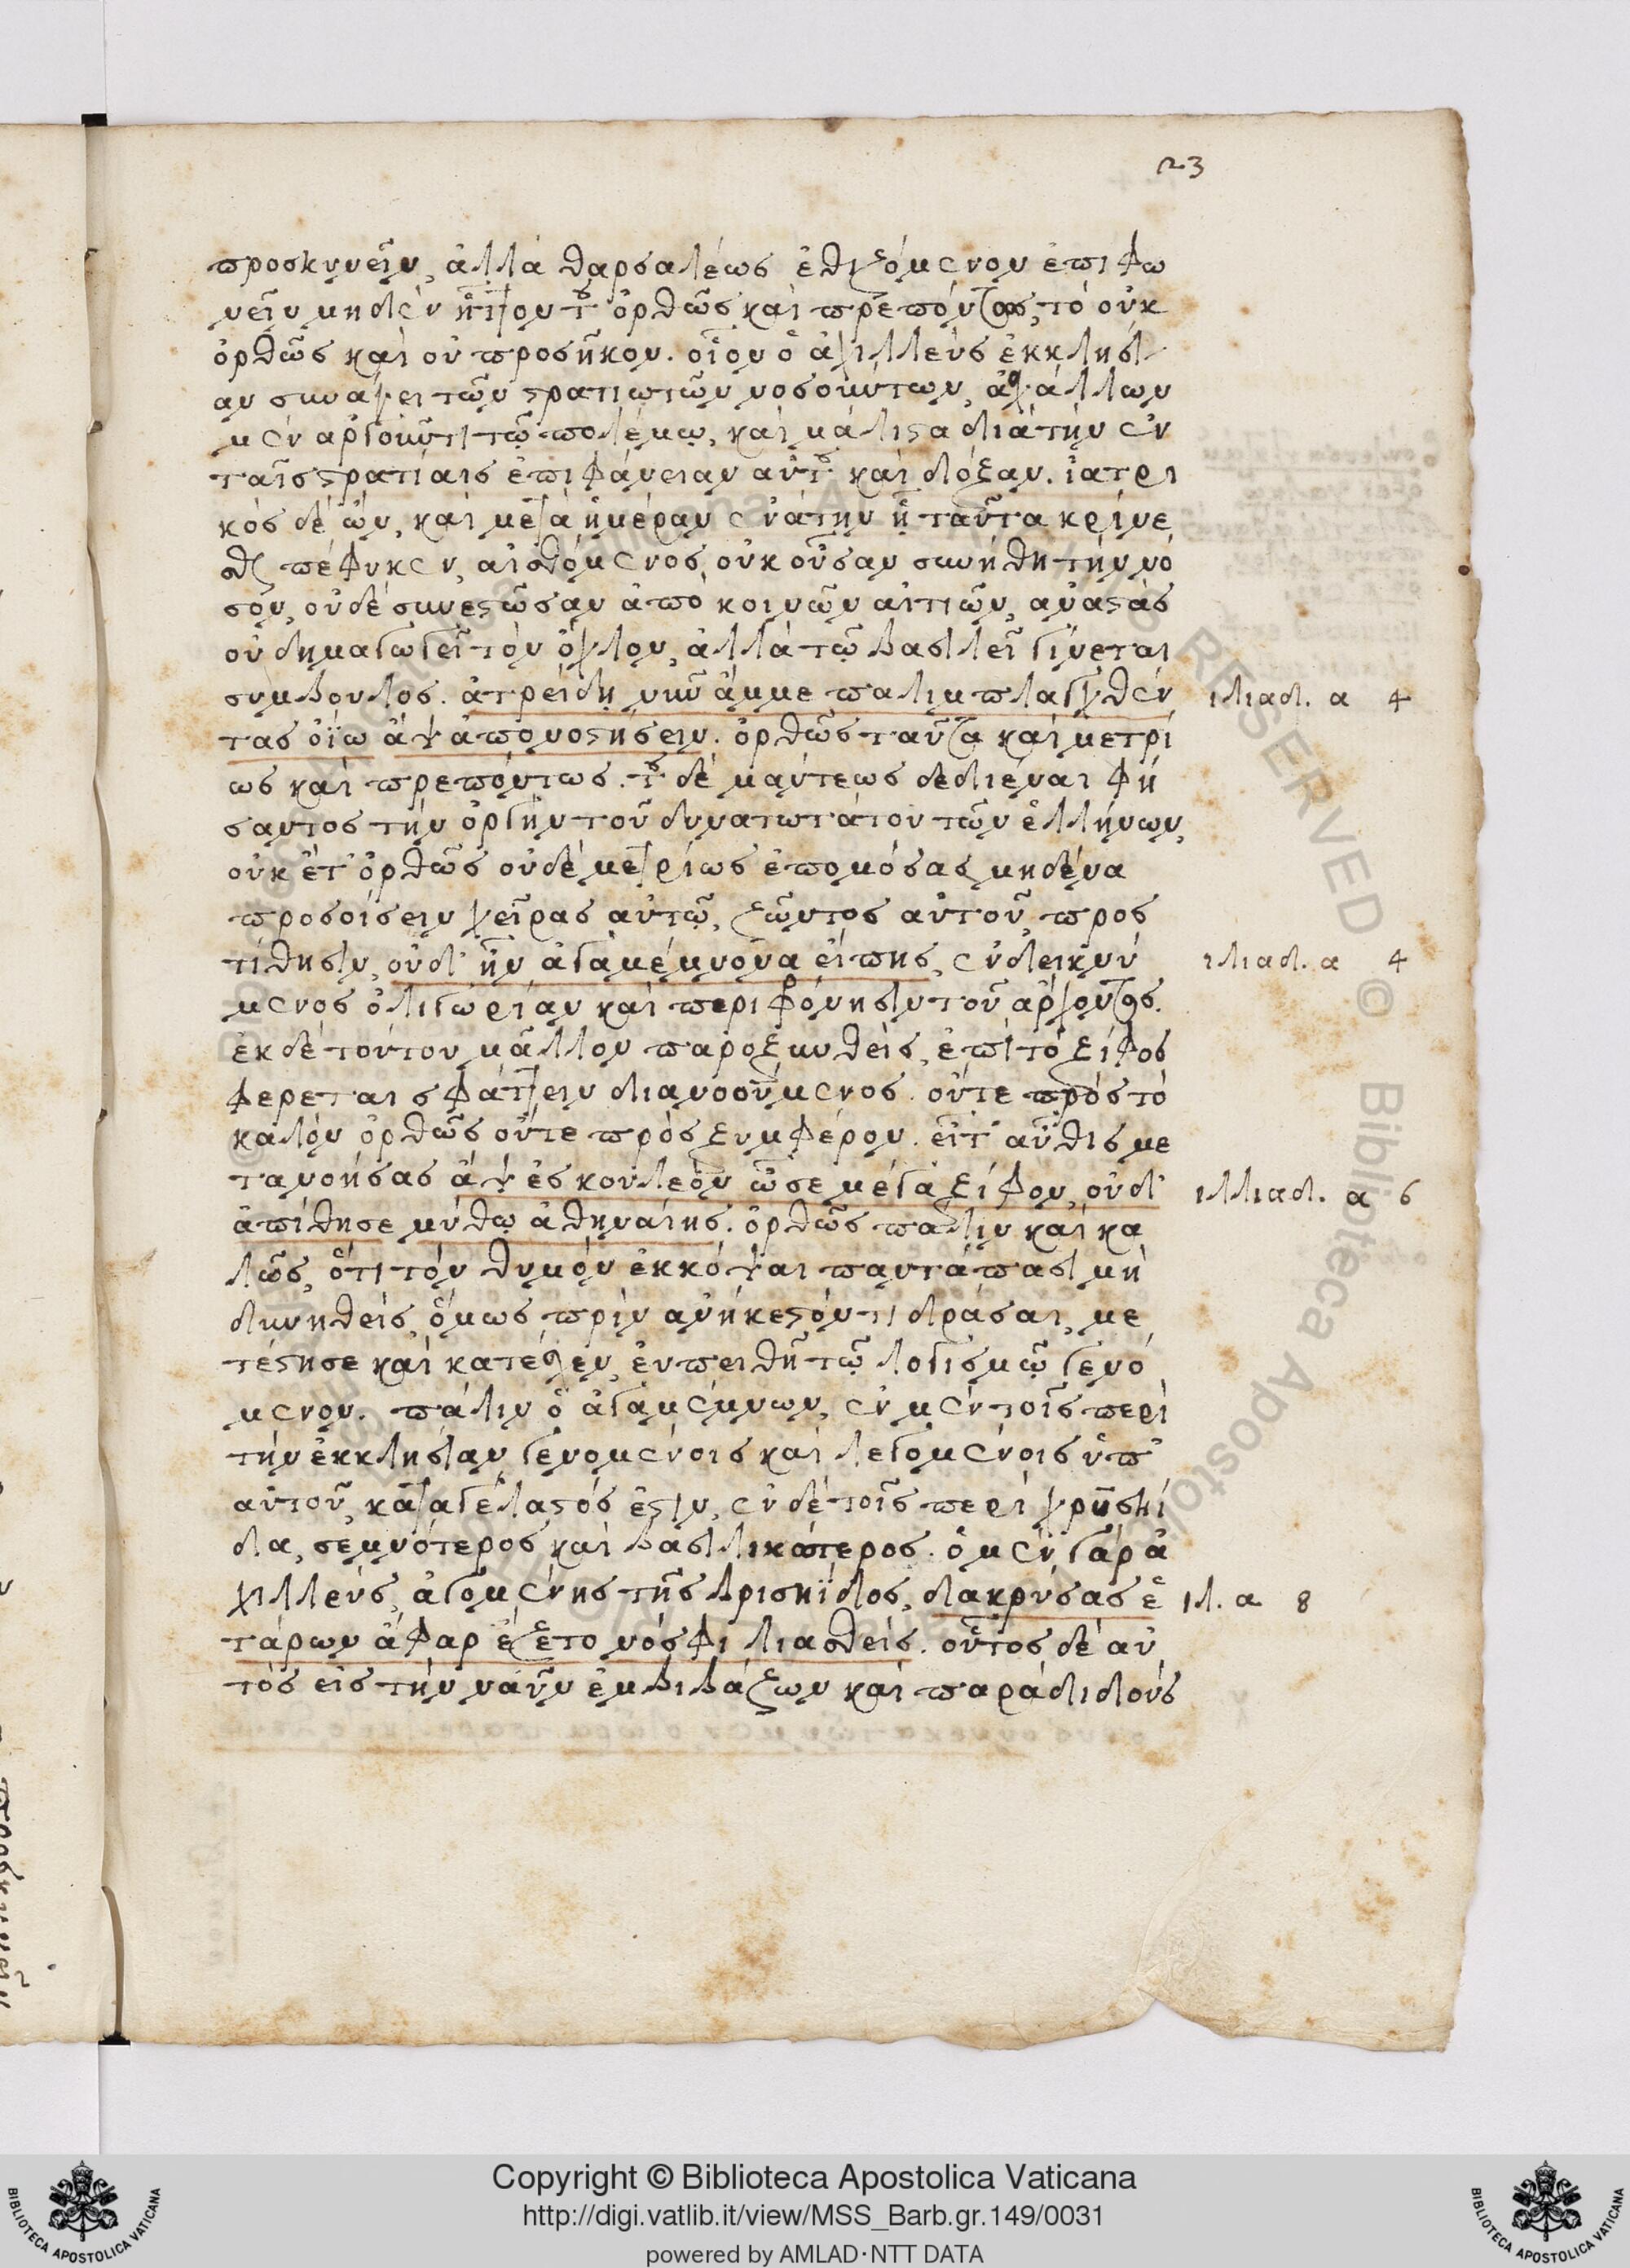 23
προσκυνεῖν, ἀλλὰ θαρσαλέως ἐθιζόμενον ἐπιφω
νεῖν μηδὲν ἧττον τοῦ ὀρθῶς καὶ πρεπόντως, τὸ οὐκ
ὀρθῶς καὶ οὐ προσῆκον. οἷον ὁ ἀχιλλεὺς ἐκκλησί
αν συνάγει τῶν στρατιωτῶν νοσούντων, ἀσχάλλων
μὲν ἀργοῦντι τῷ πολέμῳ, καὶ μάλιστα διὰ τὴν ἐν
ταῖς στρατίαις ἐπιφάνειαν αὐτοῦ καὶ δόξαν. ἰατρι
κὸς δὲ ὢν, καὶ μετὰ ἡμέραν ἐνάτην ᾗ ταῦτα κρίνε
σθαι πέφυκεν, αἰσθόμενος οὐκ οὖσαν συνήθη τὴν νό
σον, οὐδὲ συνεστῶσαν ἀπὸ κοινῶν αἰτιῶν, ἀναστὰς
οὐ δημαγωγεῖ τὸν ὄχλον, ἀλλὰ τῷ βασιλεῖ γίνεται
σύμβουλος. ἀτρείδη νῦν ἄμμε παλιμπλαγχθέν ιλιαδ. α 4
τας οἴω ἂψ ἀπονοστήσειν. ὀρθῶς ταῦτα καὶ μετρί
ως καὶ πρεπόντως. τοῦ δὲ μάντεως δεδιέναι φή
σαντος τὴν ὀργὴν τοῦ δυνατωτάτου τῶν ἑλλήνων,
οὐκ ἔτ' ὀρθῶς οὐδὲ μετρίως ἐπομόσας μηδένα
προσοίσειν χεῖρας αὐτῷ, ζῶντος αὐτοῦ, προς
τίθησιν, οὐδ' ἢν ἀγαμέμνονα εἴπης, ἐνδεικνύ ιλιαδ. α 4
μενος ὀλιγωρίαν καὶ περιφρόνησιν τοῦ ἄρχοντος.
ἐκ δὲ τούτου μᾶλλον παροξυνθεὶς, ἐπὶ τὸ ξίφος
φέρεται σφάττειν διανοούμενος. οὔτε πρὸς τὸ
καλὸν ὀρθῶς οὔτε πρὸς ξυμφέρον. εἶτ' αὖθις με
τανοήσας ἂψ ἐς κουλεὸν ὦσε μέγα ξίφον, οὐδ' ιλλιαδ. α 6
ἀπίθησε μύθῳ ἀθηναίης. ὀρθῶς πάλιν καὶ κα
λῶς, ὅτι τὸν θυμὸν ἐκκόψαι παντάπασι μὴ
δυνηθεὶς, ὅμως πρὶν ἀνήκεστόν τι δράσαι, με
τέστησε καὶ κατέσχεν, ἐυπειθῆ τῷ λογισμῷ γενό
μενον. πάλιν ὁ ἀγαμέμνων, ἐν μὲν τοῖς περὶ
τὴν ἐκκλησίαν γενομένοις καὶ λεγομένοις ὑπ'
αὐτοῦ, καταγέλαστός ἐστιν, ἐν δὲ τοῖς περὶ χρυσηί
δα, σεμνότερος καὶ βασιλικώτερος. ὁ μὲν γὰρ ἀ
χιλλεὺς, ἀγομένης τῆς βρισηΐδος, δακρύσας ἑ ιλ. α 8
τάρων ἄφαρ ἕζετο νόσφι λιασθείς. οὗτος δὲ αὐ
τὸς εἰς τὴν ναῦν ἐμβιβάζων καὶ παραδιδοὺς
Copyright © Biblioteca Apostolica Vaticana
http://digi.vatlib.it/view/MSS_Barb.gr.149/0031
powered by AMLAD·NTT DATA